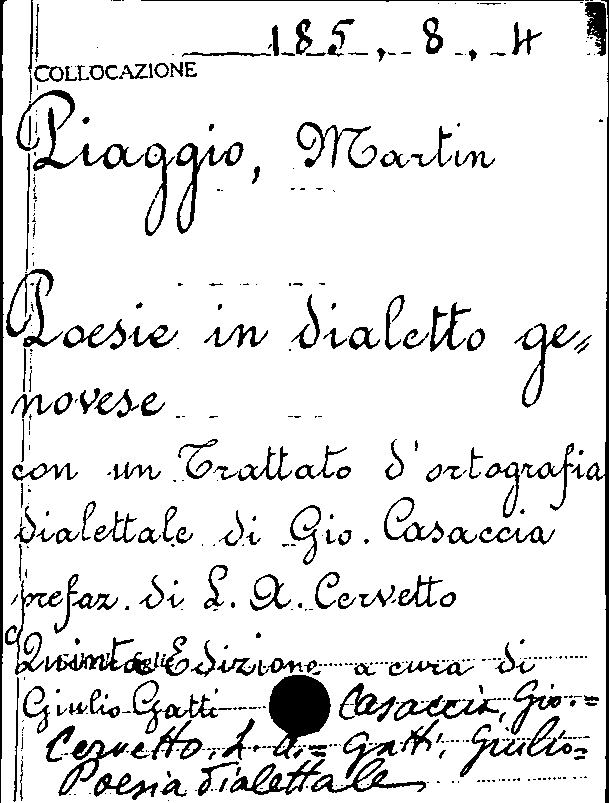 185.8.4
COLLOCAZIONE
Piaggio, Martin
Poesie in dialetto ge=
novese
con un Trattato d'ortografia
dialettale di Gio. Casaccia
prefaz. di L. A. Cervetto
Quinta Edizione a cura di
Giulio Gatti Casaccia, Gio.=
Cervetto, L. A.= Gatti, Giulio=
Poesia dialettale